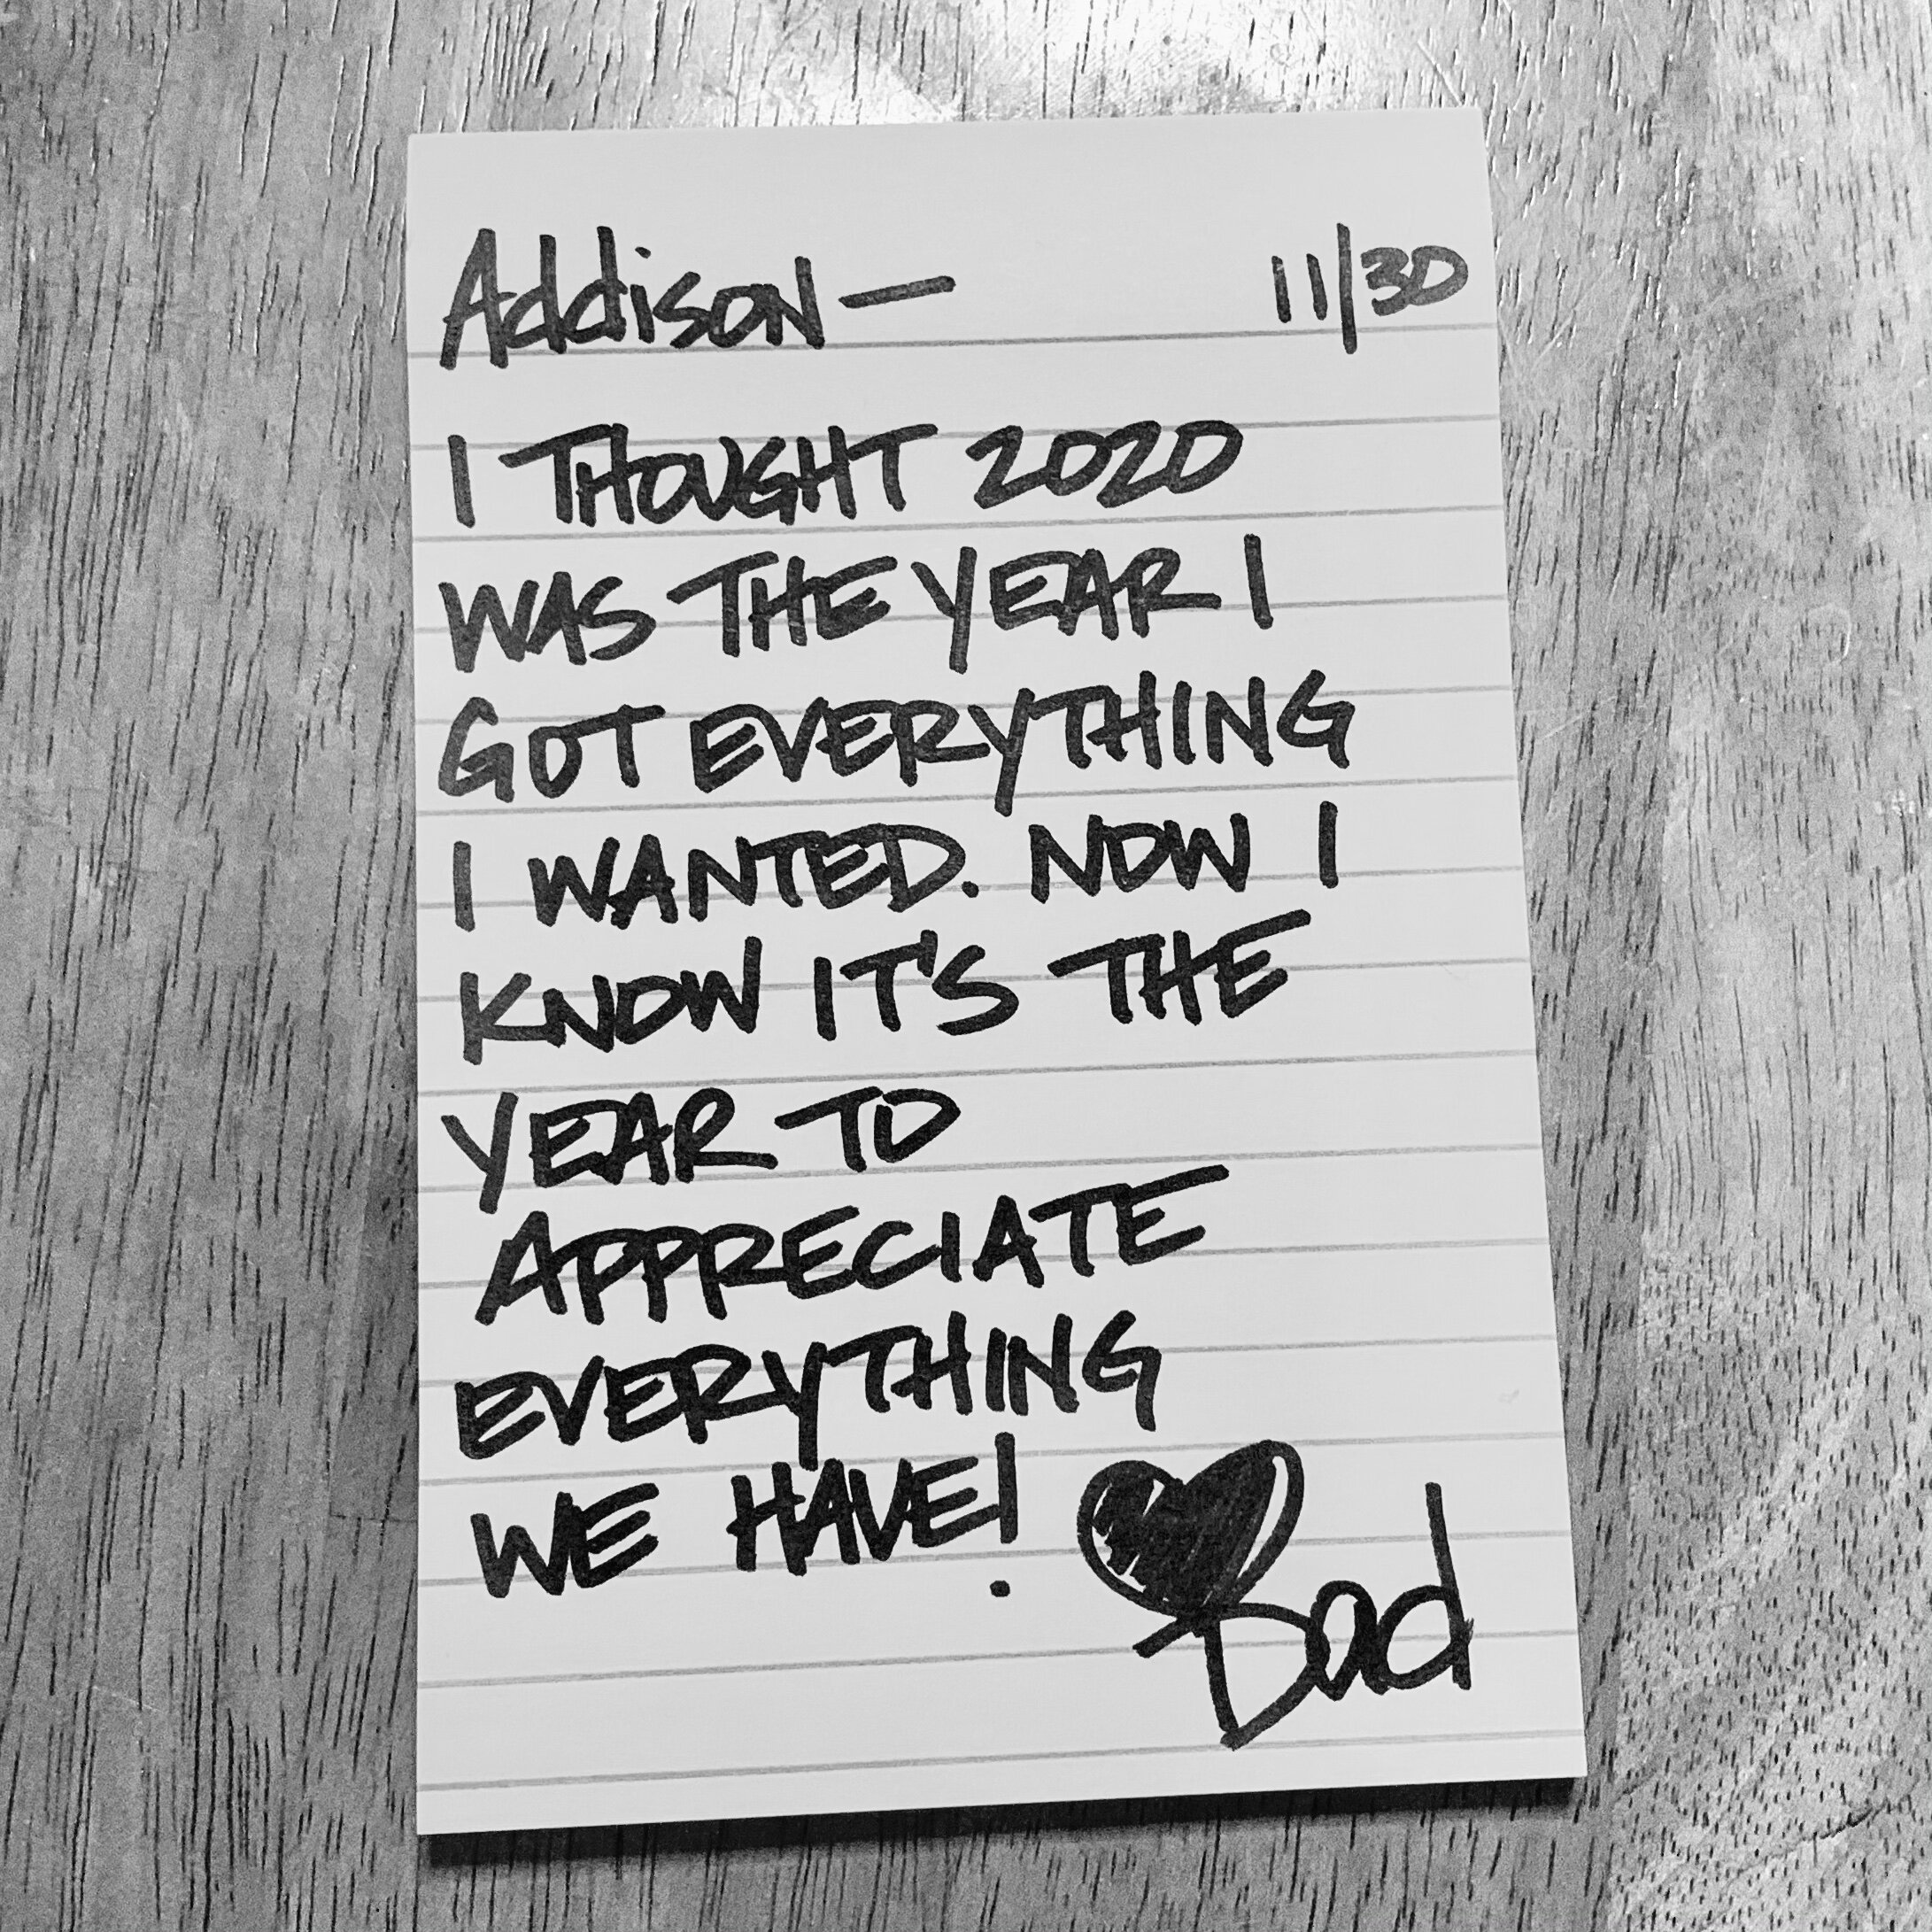 Addison — 11/30
I THOUGHT 2020
WAS THE YEAR I
GOT EVERYTHING
I WANTED. NOW I
KNOW IT'S THE
YEAR TO
APPRECIATE
EVERYTHING
WE HAVE!
Dad